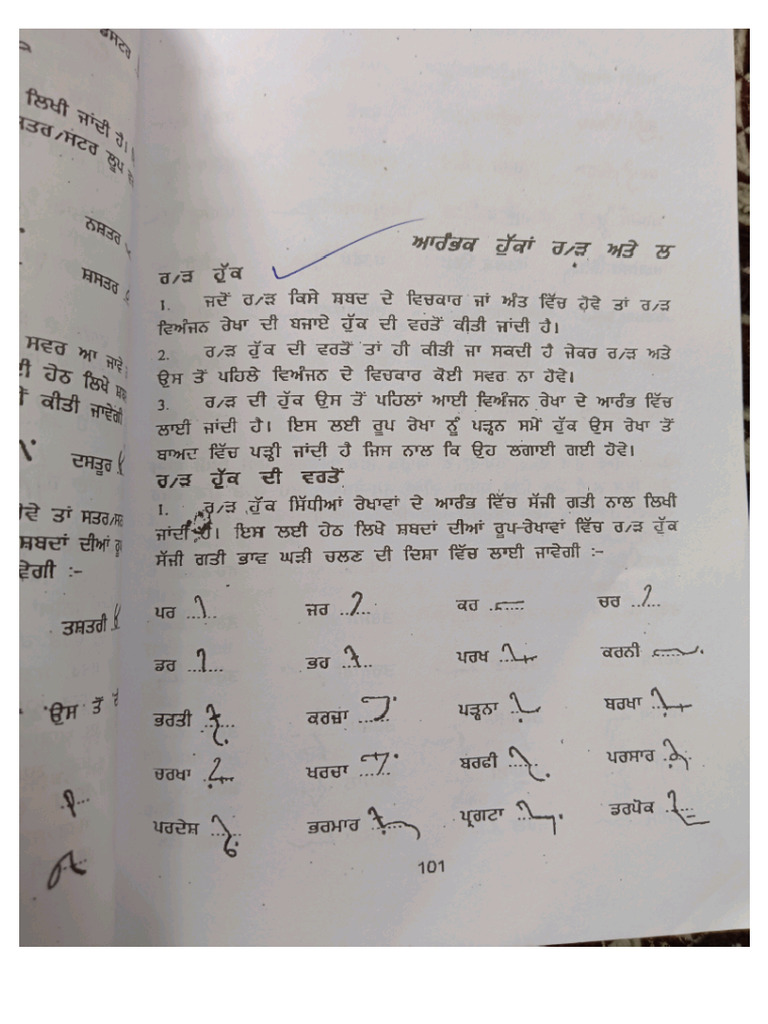 ਸ਼ਸਟਰ
ਲਿਖੀ ਜਾਂਦੀ ਹੈ।
ਸਤਰ/ਸਟਰ ਲੂਪ
ਨਸ਼ਤਰ
ਸ਼ਸਤਰ
ਸਵਰ ਆ ਜਾਵੇ
ਹੇਠ ਲਿਖੇ
ਕੀਤੀ ਜਾਵੇਗੀ
ਦਸਤੂਰ
ਵੇ ਤਾਂ ਸਤਰ/ਸਟ
ਸ਼ਬਦਾਂ ਦੀਆਂ ਰੂ
ਵੇਗੀ :-
ਤਸ਼ਤਰੀ
ਉਸ ਤੋਂ
ਆਰੰਭਕ ਹੁੱਕਾਂ ਰ/ੜ ਅਤੇ ਲ
ਰ/ੜ ਹੁੱਕ
1. ਜਦੋਂ ਰ/ੜ ਕਿਸੇ ਸ਼ਬਦ ਦੇ ਵਿਚਕਾਰ ਜਾਂ ਅੰਤ ਵਿੱਚ ਹੋਵੇ ਤਾਂ ਰ/ੜ
ਵਿਅੰਜਨ ਰੇਖਾ ਦੀ ਬਜਾਏ ਹੁੱਕ ਦੀ ਵਰਤੋਂ ਕੀਤੀ ਜਾਂਦੀ ਹੈ।
2. ਰ/ੜ ਹੁੱਕ ਦੀ ਵਰਤੋਂ ਤਾਂ ਹੀ ਕੀਤੀ ਜਾ ਸਕਦੀ ਹੈ ਜੇਕਰ ਰ/ੜ ਅਤੇ
ਉਸ ਤੋਂ ਪਹਿਲੇ ਵਿਅੰਜਨ ਦੇ ਵਿਚਕਾਰ ਕੋਈ ਸਵਰ ਨਾ ਹੋਵੇ।
3. ਰ/ੜ ਦੀ ਹੁੱਕ ਉਸ ਤੋਂ ਪਹਿਲਾਂ ਆਈ ਵਿਅੰਜਨ ਰੇਖਾ ਦੇ ਆਰੰਭ ਵਿੱਚ
ਲਾਈ ਜਾਂਦੀ ਹੈ। ਇਸ ਲਈ ਰੂਪ ਰੇਖਾ ਨੂੰ ਪੜ੍ਹਨ ਸਮੇਂ ਹੁੱਕ ਉਸ ਰੇਖਾ ਤੋਂ
ਬਾਅਦ ਵਿੱਚ ਪੜ੍ਹੀ ਜਾਂਦੀ ਹੈ ਜਿਸ ਨਾਲ ਕਿ ਉਹ ਲਗਾਈ ਗਈ ਹੋਵੇ।
ਰ/ੜ ਹੁੱਕ ਦੀ ਵਰਤੋਂ
1. ਰ/ੜ ਹੁੱਕ ਸਿੱਧੀਆਂ ਰੇਖਾਵਾਂ ਦੇ ਆਰੰਭ ਵਿੱਚ ਸੱਜੀ ਗਤੀ ਨਾਲ ਲਿਖੀ
ਜਾਂਦੀ ਹੈ। ਇਸ ਲਈ ਹੇਠ ਲਿਖੇ ਸ਼ਬਦਾਂ ਦੀਆਂ ਰੂਪ-ਰੇਖਾਵਾਂ ਵਿੱਚ ਰ/ੜ ਹੁੱਕ
ਸੱਜੀ ਗਤੀ ਭਾਵ ਘੜੀ ਚਲਣ ਦੀ ਦਿਸ਼ਾ ਵਿੱਚ ਲਾਈ ਜਾਵੇਗੀ :-
ਪਰ ਜਰ ਕਰ ਚਰ
ਡਰ ਭਰ ਪਰਖ ਕਰਨੀ
ਭਰਤੀ ਕਰਜ਼ਾ ਪੜ੍ਹਨਾ ਬਰਖਾ
ਚਰਖਾ ਖਰਚਾ ਬਰਫੀ ਪਰਸਾਰ
ਪਰਦੇਸ਼ ਭਰਮਾਰ ਪ੍ਰਗਟਾ ਡਰਪੋਕ
101